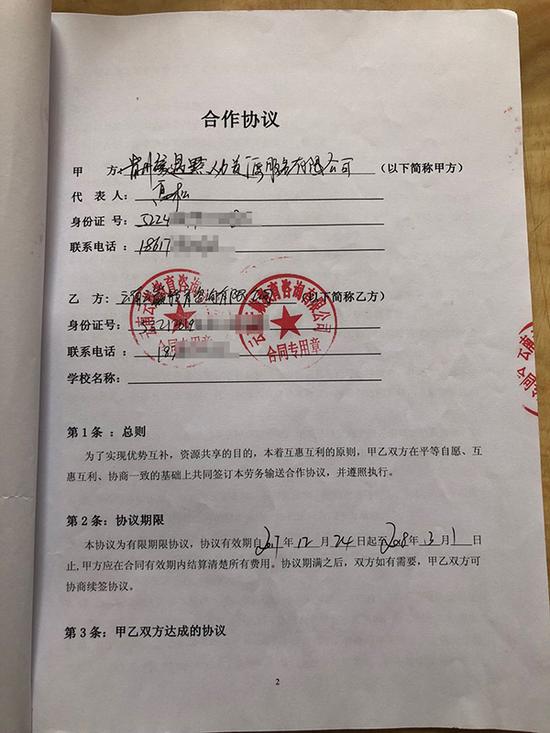 合作协议
甲 方: 力资源服务有限公司 (以下简称甲方)
代 表 人:
身份证 号: 5224
联系电话 : 18617
乙 方: 云南云 教育咨询有限公司 (以下简称乙方)
身份证号:
联系电话 :
学校名称:
教育咨询有限公司
合同专用章
教育咨询有限公司
合同专用章
云南
合同
第 1 条 : 总则
为了实现优势互补,资源共享的目的,本着互惠互利的原则,甲乙双方在平等自愿、互
惠互利、协商一致的基础上共同签订本劳务输送合作协议,并遵照执行。
第 2 条: 协议期限
本协议为有限期限协议,协议有效期自2017年 12 月 24 日起至2018年 3 月 1 日
止,甲方应在合同有效期内结算清楚所有费用。协议期满之后,双方如有需要,甲乙双方可
协商续签协议。
第 3 条:甲乙双方达成的协议
2